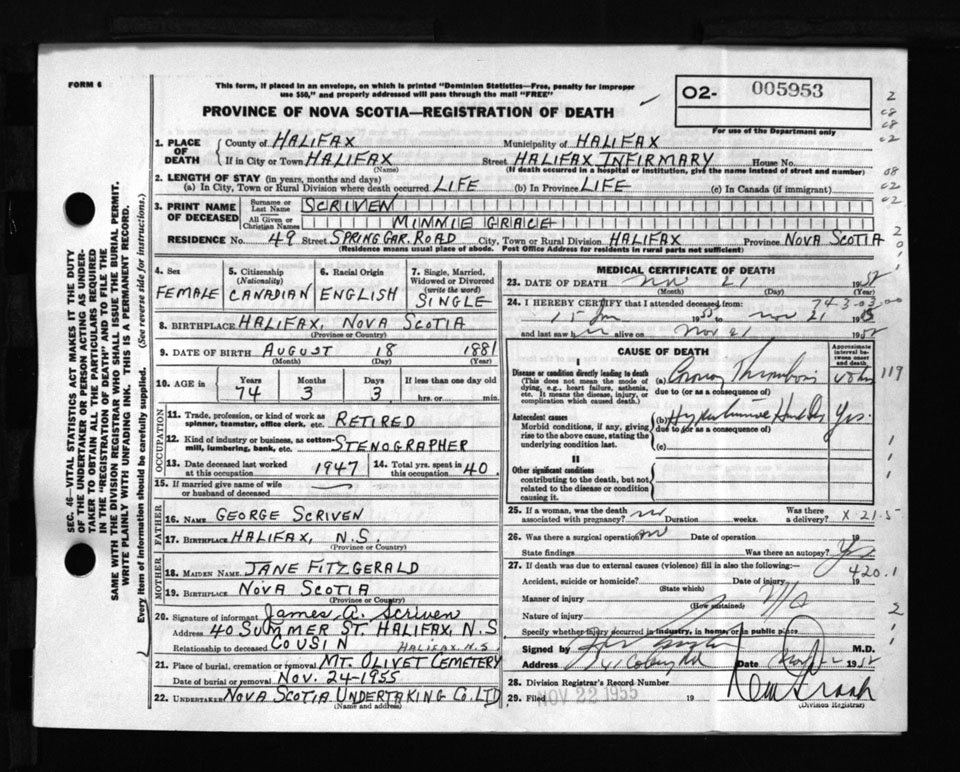 FORM 6
This form, if placed in an envelope, on which is printed "Dominion Statistics—Free, penalty for improper
use $50," and properly addressed will pass through the mail "FREE"
02- 005953
PROVINCE OF NOVA SCOTIA—REGISTRATION OF DEATH
For use of the Department only
1. PLACE OF DEATH County of HALIFAX Municipality of HALIFAX
If in City or Town HALIFAX Street HALIFAX INFIRMARY House No.
(Name) (If death occurred in a hospital or institution, give the name instead of street and number)
2. LENGTH OF STAY (in years, months and days)
(a) In City, Town or Rural Division where death occurred LIFE (b) In Province LIFE (c) In Canada (if immigrant)
3. PRINT NAME OF DECEASED Surname or Last Name SCRIVEN
All Given or Christian Names MINNIE GRACE
RESIDENCE No. 49 Street SPRING GAR. ROAD City, Town or Rural Division HALIFAX Province NOVA SCOTIA
(Residence means usual place of abode. Post Office Address for residents in rural parts not sufficient)
4. Sex FEMALE
5. Citizenship (Nationality) CANADIAN
6. Racial Origin ENGLISH
7. Single, Married, Widowed or Divorced (write the word) SINGLE
8. BIRTHPLACE HALIFAX, NOVA SCOTIA
(Province or Country)
9. DATE OF BIRTH AUGUST 18 1881
(Month) (Day) (Year)
10. AGE in Years 74 Months 3 Days 3 If less than one day old hrs. or min.
OCCUPATION
11. Trade, profession, or kind of work as spinner, teamster, office clerk, etc. RETIRED
12. Kind of industry or business, as cotton-mill, lumbering, bank, etc. STENOGRAPHER
13. Date deceased last worked at this occupation 1947 14. Total yrs. spent in this occupation 40
15. If married give name of wife or husband of deceased
FATHER
16. NAME GEORGE SCRIVEN
17. BIRTHPLACE HALIFAX, N.S.
(Province or Country)
MOTHER
18. MAIDEN NAME JANE FITZGERALD
19. BIRTHPLACE NOVA SCOTIA
(Province or Country)
20. Signature of informant James A. Scriven
Address 40 SUMMER ST. HALIFAX, N.S
Relationship to deceased COUSIN HALIFAX. N.S.
21. Place of burial, cremation or removal MT. OLIVET CEMETERY
Date of burial or removal NOV. 24-1955
22. UNDERTAKER NOVA SCOTIA UNDERTAKING CO. LTD
(Name and address)
MEDICAL CERTIFICATE OF DEATH
23. DATE OF DEATH Nov 21 19
(Month) (Day) (Year)
24. I HEREBY CERTIFY that I attended deceased from:
15 1955 to Nov 21 19
and last saw alive on Nov 21 19
I
CAUSE OF DEATH
Approximate interval between onset and death
Disease or condition directly leading to death
(This does not mean the mode of dying, e.g., heart failure, asthenia, etc. It means the disease, injury, or complication which caused death.)
(a) Coronary Thrombosis
due to (or as a consequence of)
Antecedent causes
Morbid conditions, if any, giving rise to the above cause, stating the underlying condition last.
(b) Yrs.
due to (or as a consequence of)
(c)
II
Other significant conditions
contributing to the death, but not related to the disease or condition causing it.
25. If a woman, was the death associated with pregnancy? no Duration weeks. Was there a delivery?
26. Was there a surgical operation? no Date of operation 19
State findings Was there an autopsy?
27. If death was due to external causes (violence) fill in also the following:—
420.1
Accident, suicide or homicide? Date of injury 19
(State which)
Manner of injury
(How sustained)
Nature of injury
Specify whether injury occurred in industry, in home, or in public place
Signed by M.D.
Address Date 19
28. Division Registrar's Record Number
29. Filed NOV 22 1955 19
(Division Registrar)
SEC. 46—VITAL STATISTICS ACT MAKES IT THE DUTY
OF THE UNDERTAKER OR PERSON ACTING AS UNDER-
TAKER TO OBTAIN ALL THE PARTICULARS REQUIRED
IN THE "REGISTRATION OF DEATH" AND TO FILE THE
SAME WITH THE DIVISION REGISTRAR WHO SHALL ISSUE THE BURIAL PERMIT.
WRITE PLAINLY WITH UNFADING INK. THIS IS A PERMANENT RECORD.
Every item of information should be carefully supplied. (See reverse side for instructions.)